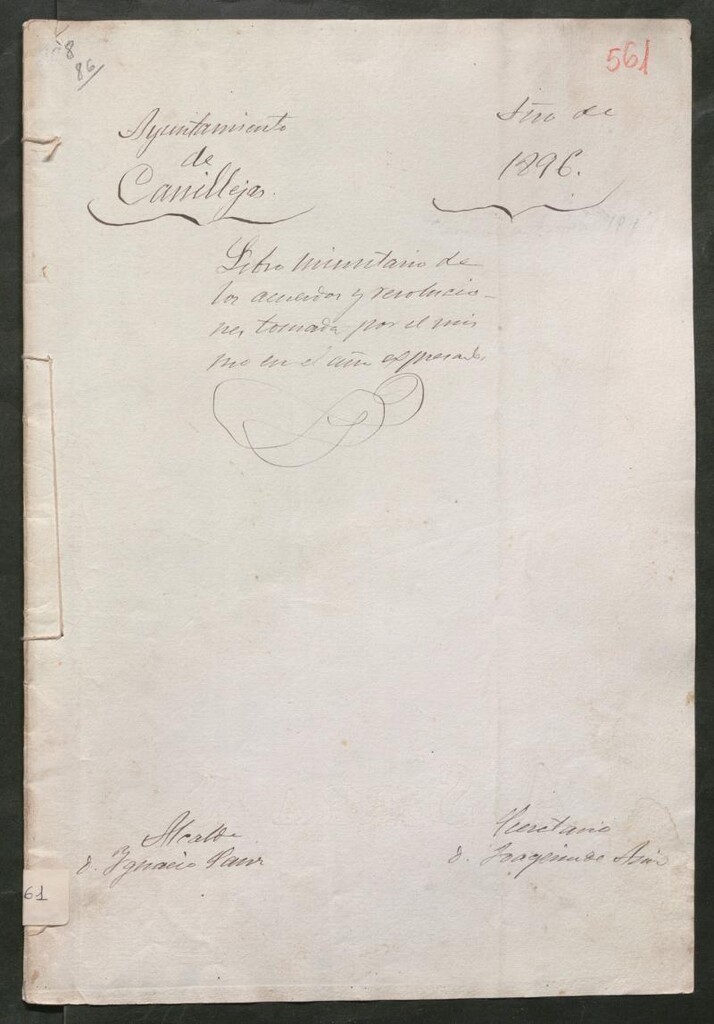 8
86/
561
Ayuntamiento
de
Canillejas.
Año de
1896.
Libro minutario de
los acuerdos y resolucio-
nes tomada por el mis
mo en el año expresado
Alcalde
D. Ignacio Sanz
Secretario
D.
61